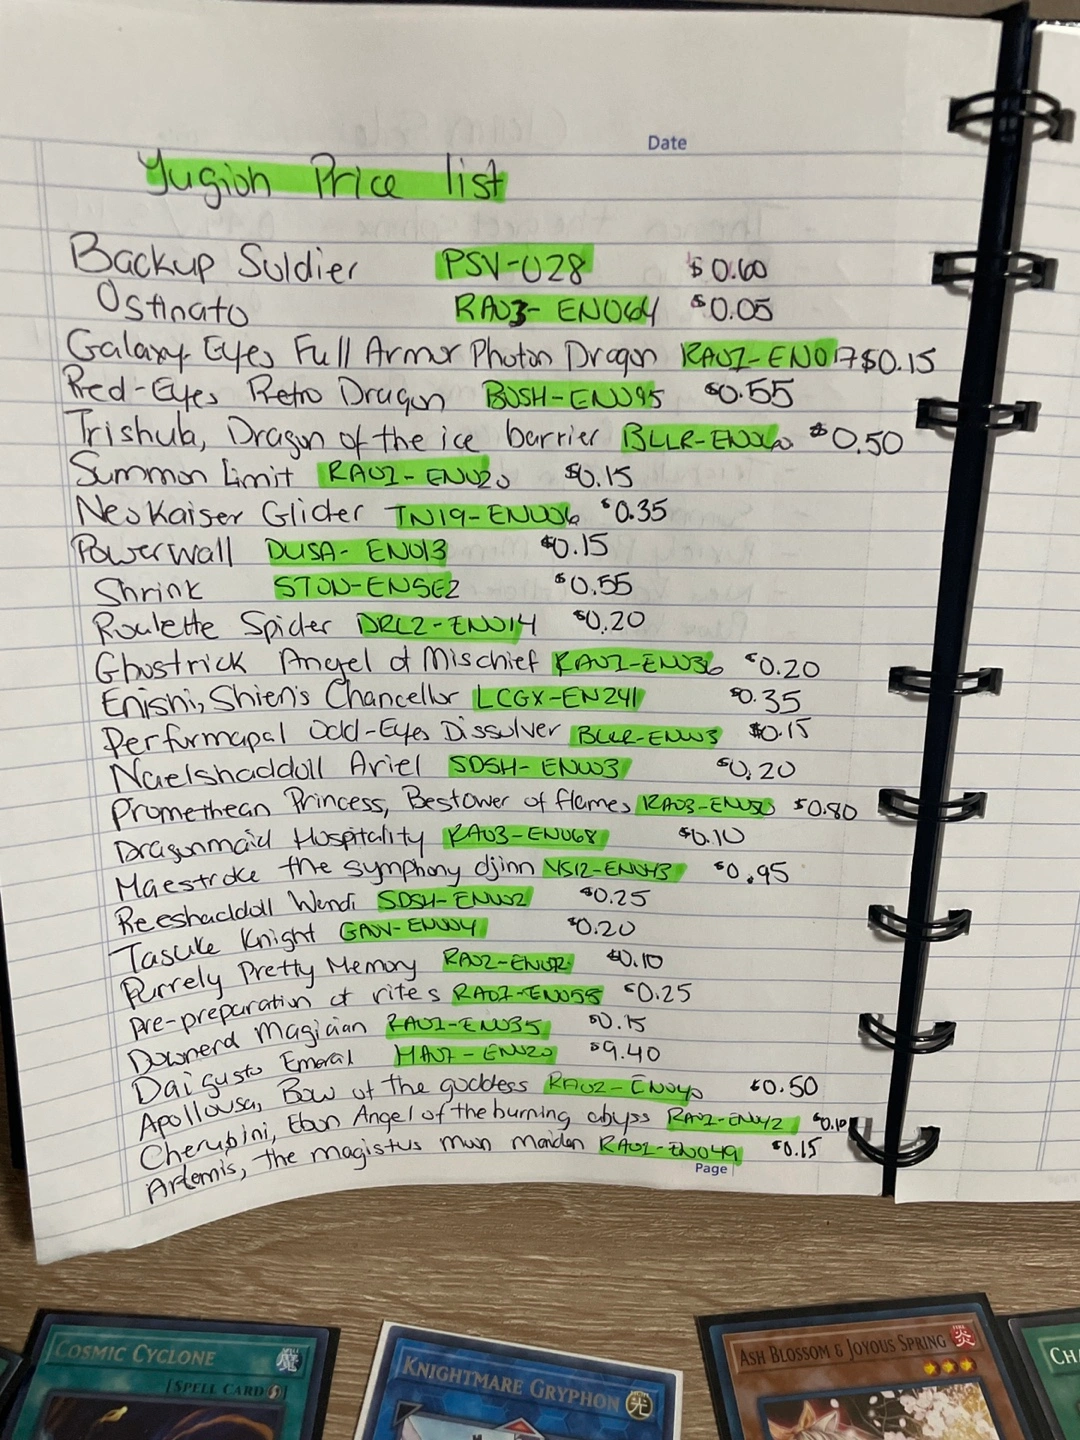 Date
Yugioh Price list
Backup Soldier PSV-028 $0.60
Ostinato RA03-EN064 $0.05
Galaxy-Eyes Full Armor Photon Dragon RA01-EN017 $0.15
Red-Eyes Retro Dragon BOSH-EN095 $0.55
Trishula, Dragon of the ice barrier BLLR-EN060 $0.50
Summon Limit RA01-EN020 $0.15
Neo Kaiser Glider TN19-EN006 $0.35
Powerwall DUSA-EN013 $0.15
Shrink STON-ENSE2 $0.55
Roulette Spider DRL2-EN014 $0.20
Ghostrick Angel of Mischief RA01-EN036 $0.20
Enishi, Shien's Chancellor LCGX-EN241 $0.35
Performapal Odd-Eyes Dissolver BLLR-EN003 $0.15
Naelshaddoll Ariel SDSH-EN003 $0.20
Promethean Princess, Bestower of flames RA03-EN050 $0.80
Dragonmaid Hospitality RA03-EN068 $0.10
Maestroke the symphony djinn YS12-EN043 $0.95
Reeshaddoll Wendi SDSH-EN002 $0.25
Tasuke Knight GAOV-EN004 $0.20
Purrely Pretty Memory $0.10
Pre-preparation of rites RA01-EN058 $0.25
Downerd Magician RA01-EN035 $0.15
Daigusto Emeral HA07-EN020 $9.40
Apollousa, Bow of the goddess RA02-EN040 $0.50
Cherubini, Ebon Angel of the burning abyss RA01-EN042 $0.10
Artemis, the magistus mun maiden RA01-EN049 $0.15
Page
COSMIC CYCLONE
[SPELL CARD
KNIGHTMARE GRYPHON
光
ASH BLOSSOM & JOYOUS SPRING
炎
CHA